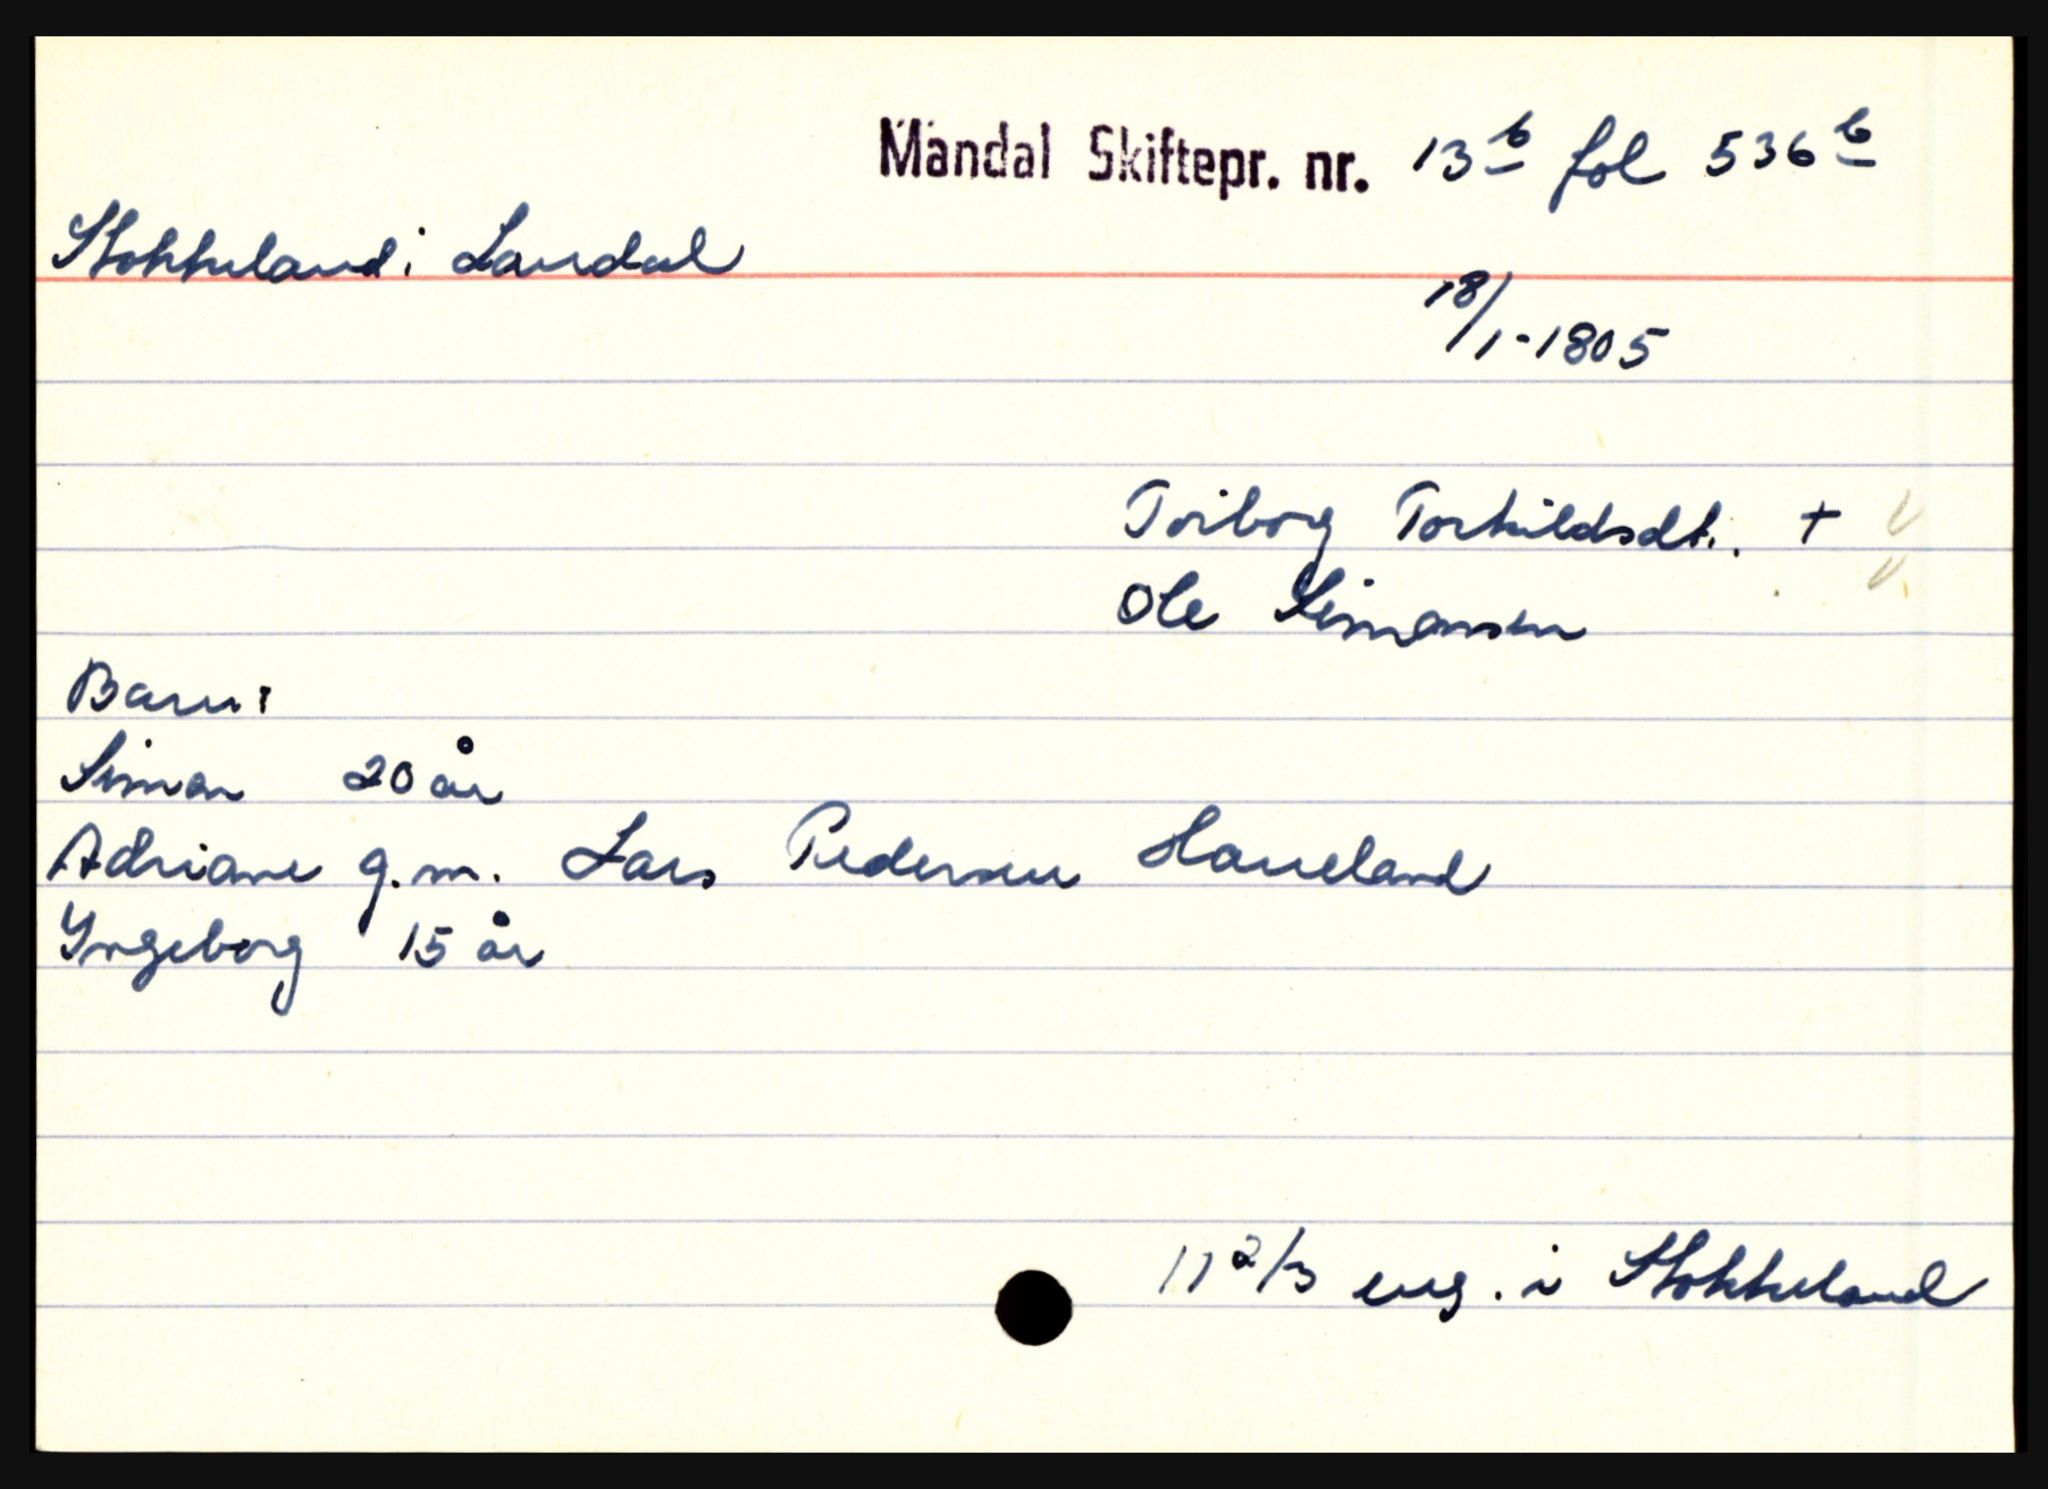 Mandal Skiftepr. nr. 13 b fol 536 b
Stokkeland i Laudal
18/1-1805
Toriborg Torkildsdt. +
Ole Simonsen
Barn:
Simon 20 år
Adriane g.m. Lars Pedersen Haueland
Yngeborg 15 år
11 2/3 eng. i Stokkeland